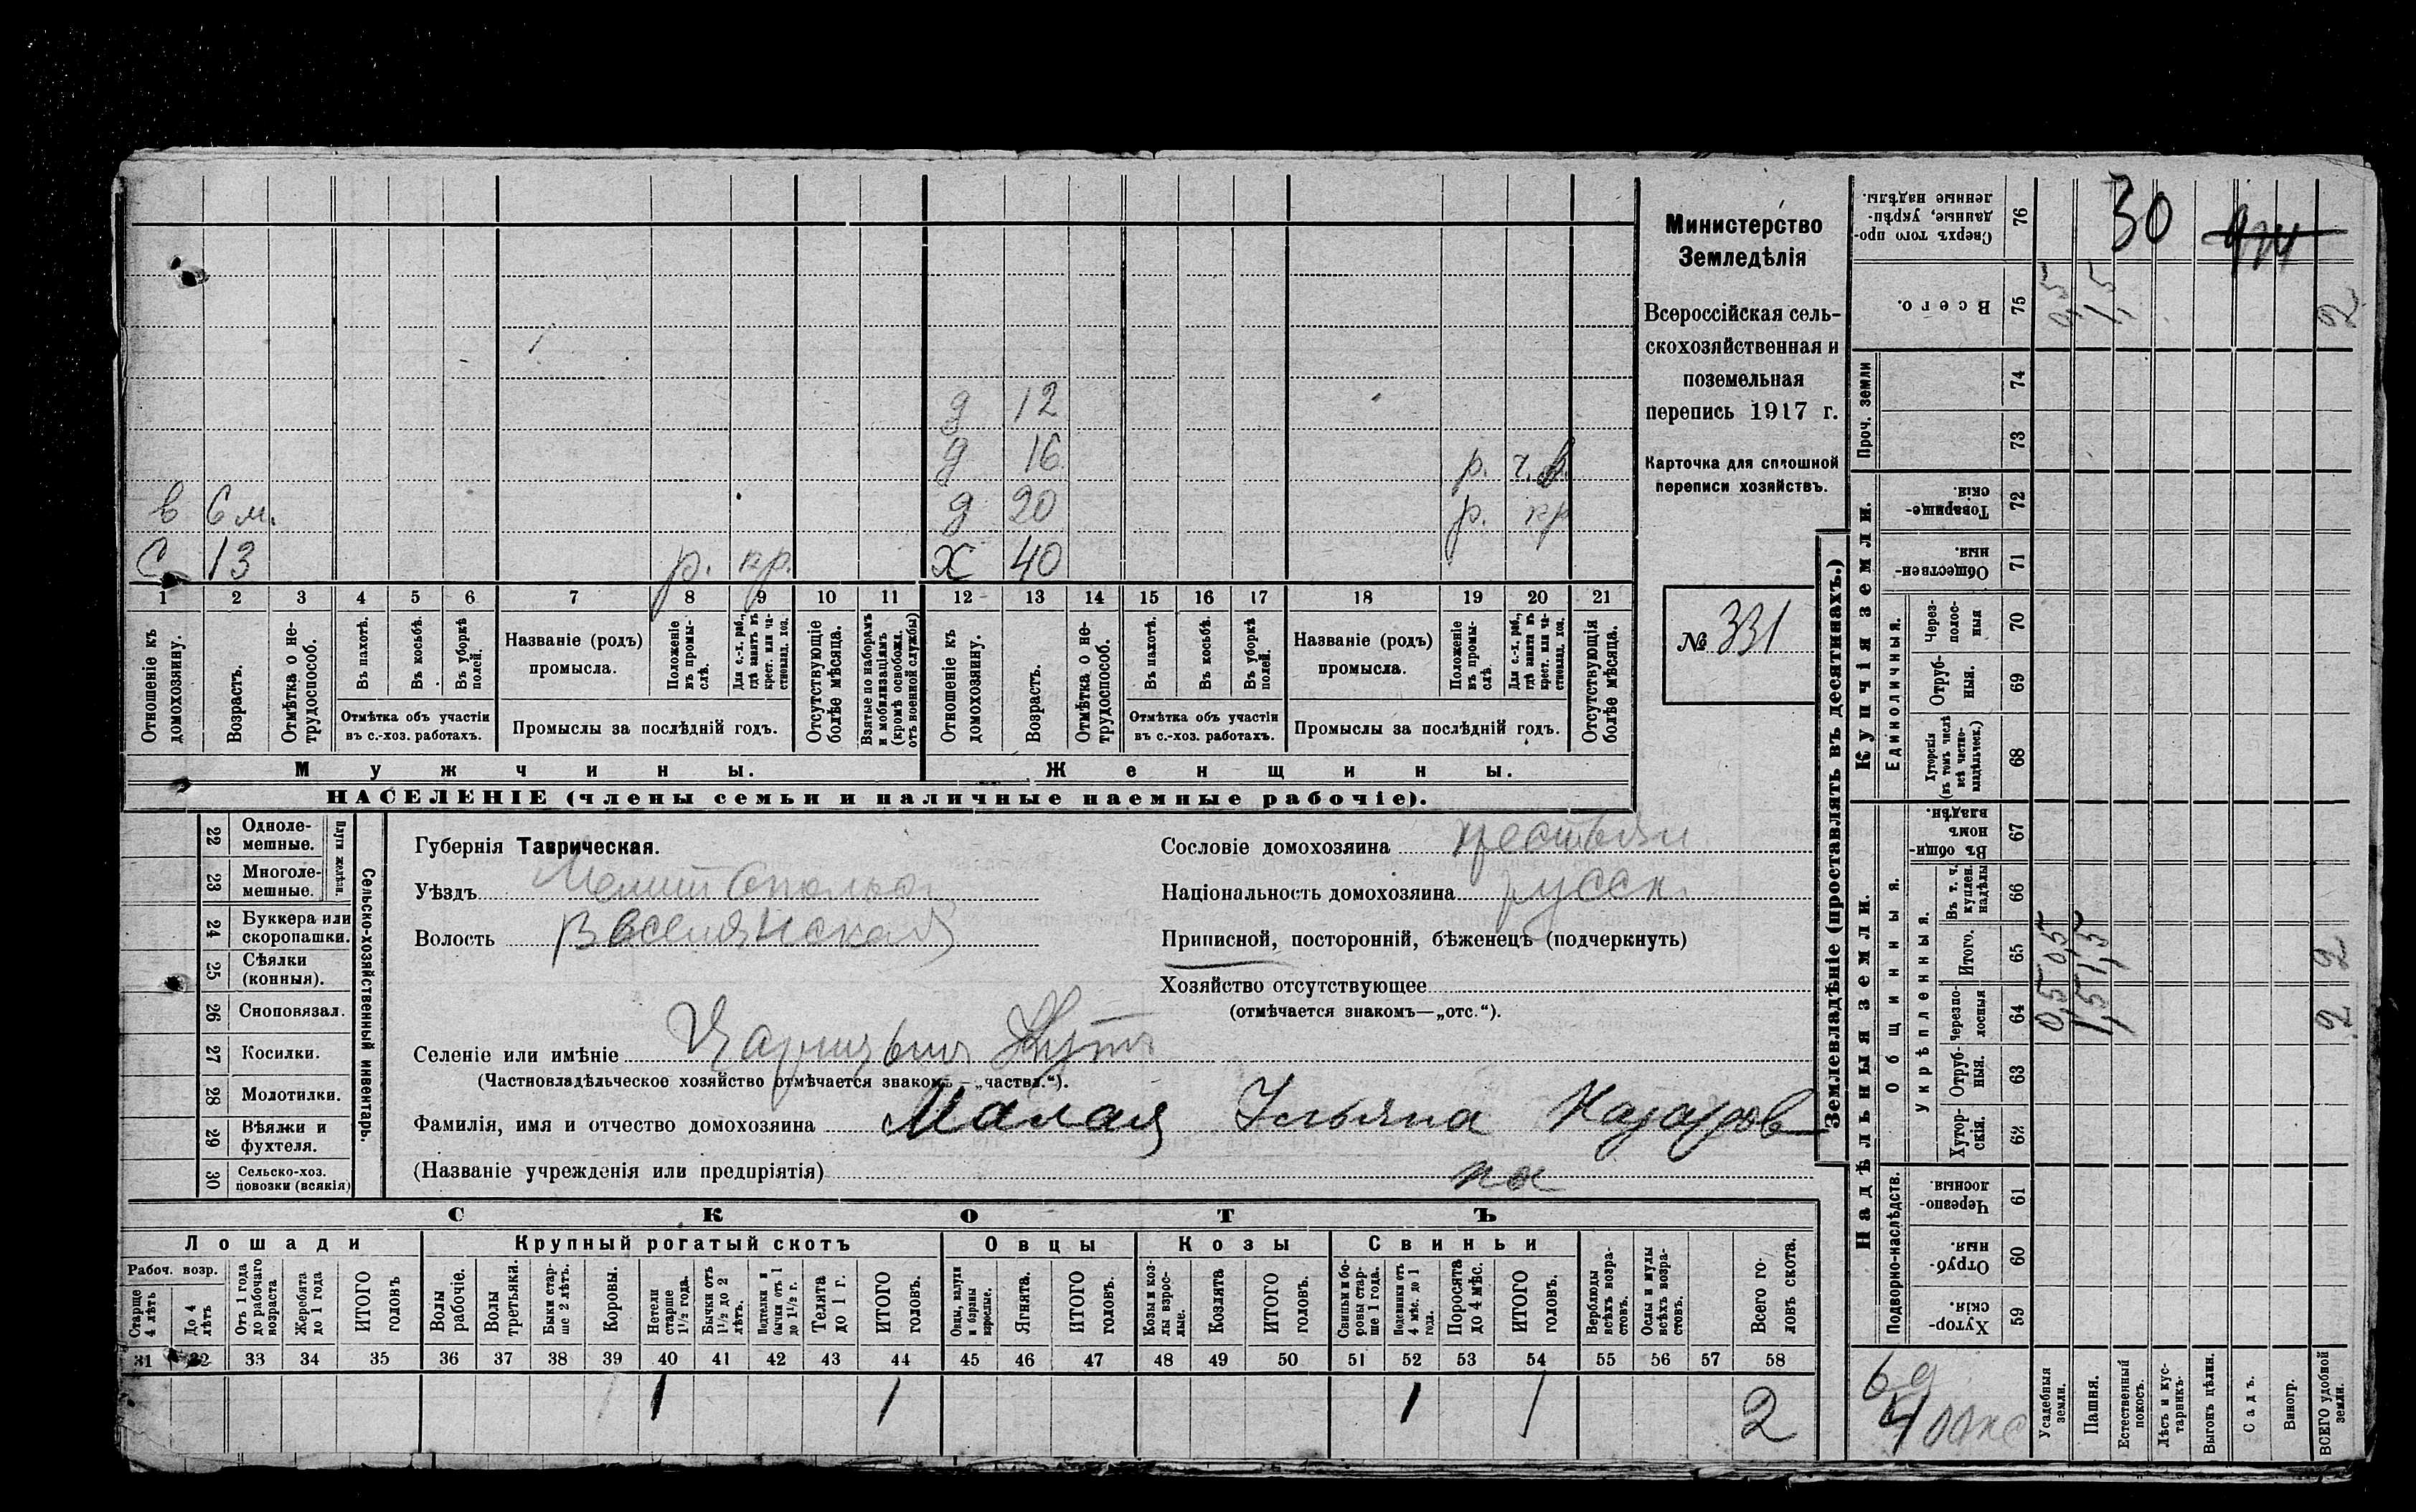 Министерство
Земледѣлія
Всероссійская сель-
скохозяйственная и
поземельная
перепись 1917 г.
Карточка для сплошной
переписи хозяйствъ.
№ 331
д 12
д 16 р. ч.в.
в 6 м. д 20 р. кр
С 13 р. кр. Х 40
1 2 3 4 5 6 7 8 9 10 11 12 13 14 15 16 17 18 19 20 21
Отношеніе къ домохозяину.
Возрастъ.
Отмѣтка о не-трудоспособ.
Въ пахотѣ.
Въ косьбѣ.
Въ уборкѣ полей.
Отмѣтка объ участіи
въ с.-хоз. работахъ.
Названіе (родъ)
промысла.
Положеніе въ промы-слѣ.
Для с.-х. раб., гдѣ занятъ въ крест. или ча-стновлад. хоз.
Промыслы за послѣдній годъ.
Отсутствующіе болѣе мѣсяца.
Взятые по наборамъ и мобилизаціямъ (кромѣ освобожд. отъ военной службы)
Отношеніе къ домохозяину.
Возрастъ.
Отмѣтка о не-трудоспособ.
Въ пахотѣ.
Въ косьбѣ.
Въ уборкѣ полей.
Отмѣтка объ участіи
въ с.-хоз. работахъ.
Названіе (родъ)
промысла.
Положеніе въ промы-слѣ.
Для с.-х. раб., гдѣ занятъ въ крест. или ча-стновлад. хоз.
Промыслы за послѣдній годъ.
Отсутствующія болѣе мѣсяца.
Мужчины. Женщины.
НАСЕЛЕНІЕ (члены семьи и наличные наемные рабочіе).
Сельско-хозяйственный инвентарь.
Плуги желѣзн.
22 Одноле-мешные.
23 Многоле-мешные.
24 Буккера или скоропашки.
25 Сѣялки (конныя).
26 Сноповязал.
27 Косилки.
28 Молотилки.
29 Вѣялки и фухтеля.
30 Сельско-хоз. повозки (всякія)
Губернія Таврическая.
Уѣздъ Мелитопольск
Волость Веселянская
Селеніе или имѣніе Царицынъ Кутъ
(Частновладѣльческое хозяйство отмѣчается знакомъ—„частвл.“).
Фамилія, имя и отчество домохозяина Малая Ульяна Назаров
на
(Названіе учрежденія или предпріятія)
Сословіе домохозяина крестьян
Національность домохозяина русск.
Приписной, посторонній, бѣженецъ (подчеркнуть)
Хозяйство отсутствующее
(отмѣчается знакомъ—„отс.“).
СКОТЪ
Лошади Крупный рогатый скотъ Овцы Козы Свиньи
Рабоч. возр.
Старше 4 лѣтъ
До 4 лѣтъ
Отъ 1 года до рабочаго возраста
Жеребята до 1 года
ИТОГО головъ
Волы рабочіе.
Волы третьяки.
Быки стар-ше 2 лѣтъ.
Коровы.
Нетели старше 1½ года.
Бычки отъ 1½ до 2 лѣтъ.
Подтелки и бычки отъ 1 до 1½ г.
Телята до 1 г.
ИТОГО головъ.
Овцы, валухи и бараны взрослые.
Ягнята.
ИТОГО головъ.
Козы и коз-лы взрос-лые.
Козлята
ИТОГО головъ.
Свиньи и бо-ровы стар-ше 1 года.
Подсвинки отъ 4 мѣс. до 1 года.
Поросята до 4 мѣс.
ИТОГО головъ.
Верблюды всѣхъ возра-стовъ.
Ослы и мулы всѣхъ возра-стовъ.
Всего го-ловъ скота.
31 32 33 34 35 36 37 38 39 40 41 42 43 44 45 46 47 48 49 50 51 52 53 54 55 56 57 58
1 1 1 1 1 2
Землевладѣніе (проставлять въ десятинахъ.)
Надѣльныя земли.
Купчія земли.
Проч. земли
Подворно-наслѣдств.
Общинныя.
Укрѣпленныя.
Единоличныя.
Сверхъ того про-данные, укрѣп-ленные надѣлы. 76 30
Всего. 75 0,5 1,5 2
74
73
Товарище-скія. 72
Обществен-ныя. 71
Через-полос-ныя 70
Отруб-ныя. 69
Хуторскія (въ томъ числѣ всѣ частно-владѣльческ.) 68
Въ общи-номъ владѣн. 67
Въ т. ч. куплен. надѣлы 66
Итого. 65 0,5 1,5 2
Черезпо-лосныя 64 0,5 1,5 2
Отруб-ныя. 63
Хутор-скія. 62
Черезпо-лосныя. 61
Отруб-ныя. 60
Хутор-скія. 59
Усадебныя земли.
Пашня.
Естественный покосъ.
Лѣсъ и кус-тарникъ.
Выгонъ цѣлин.
Садъ.
Виногр.
ВСЕГО удобной земли.